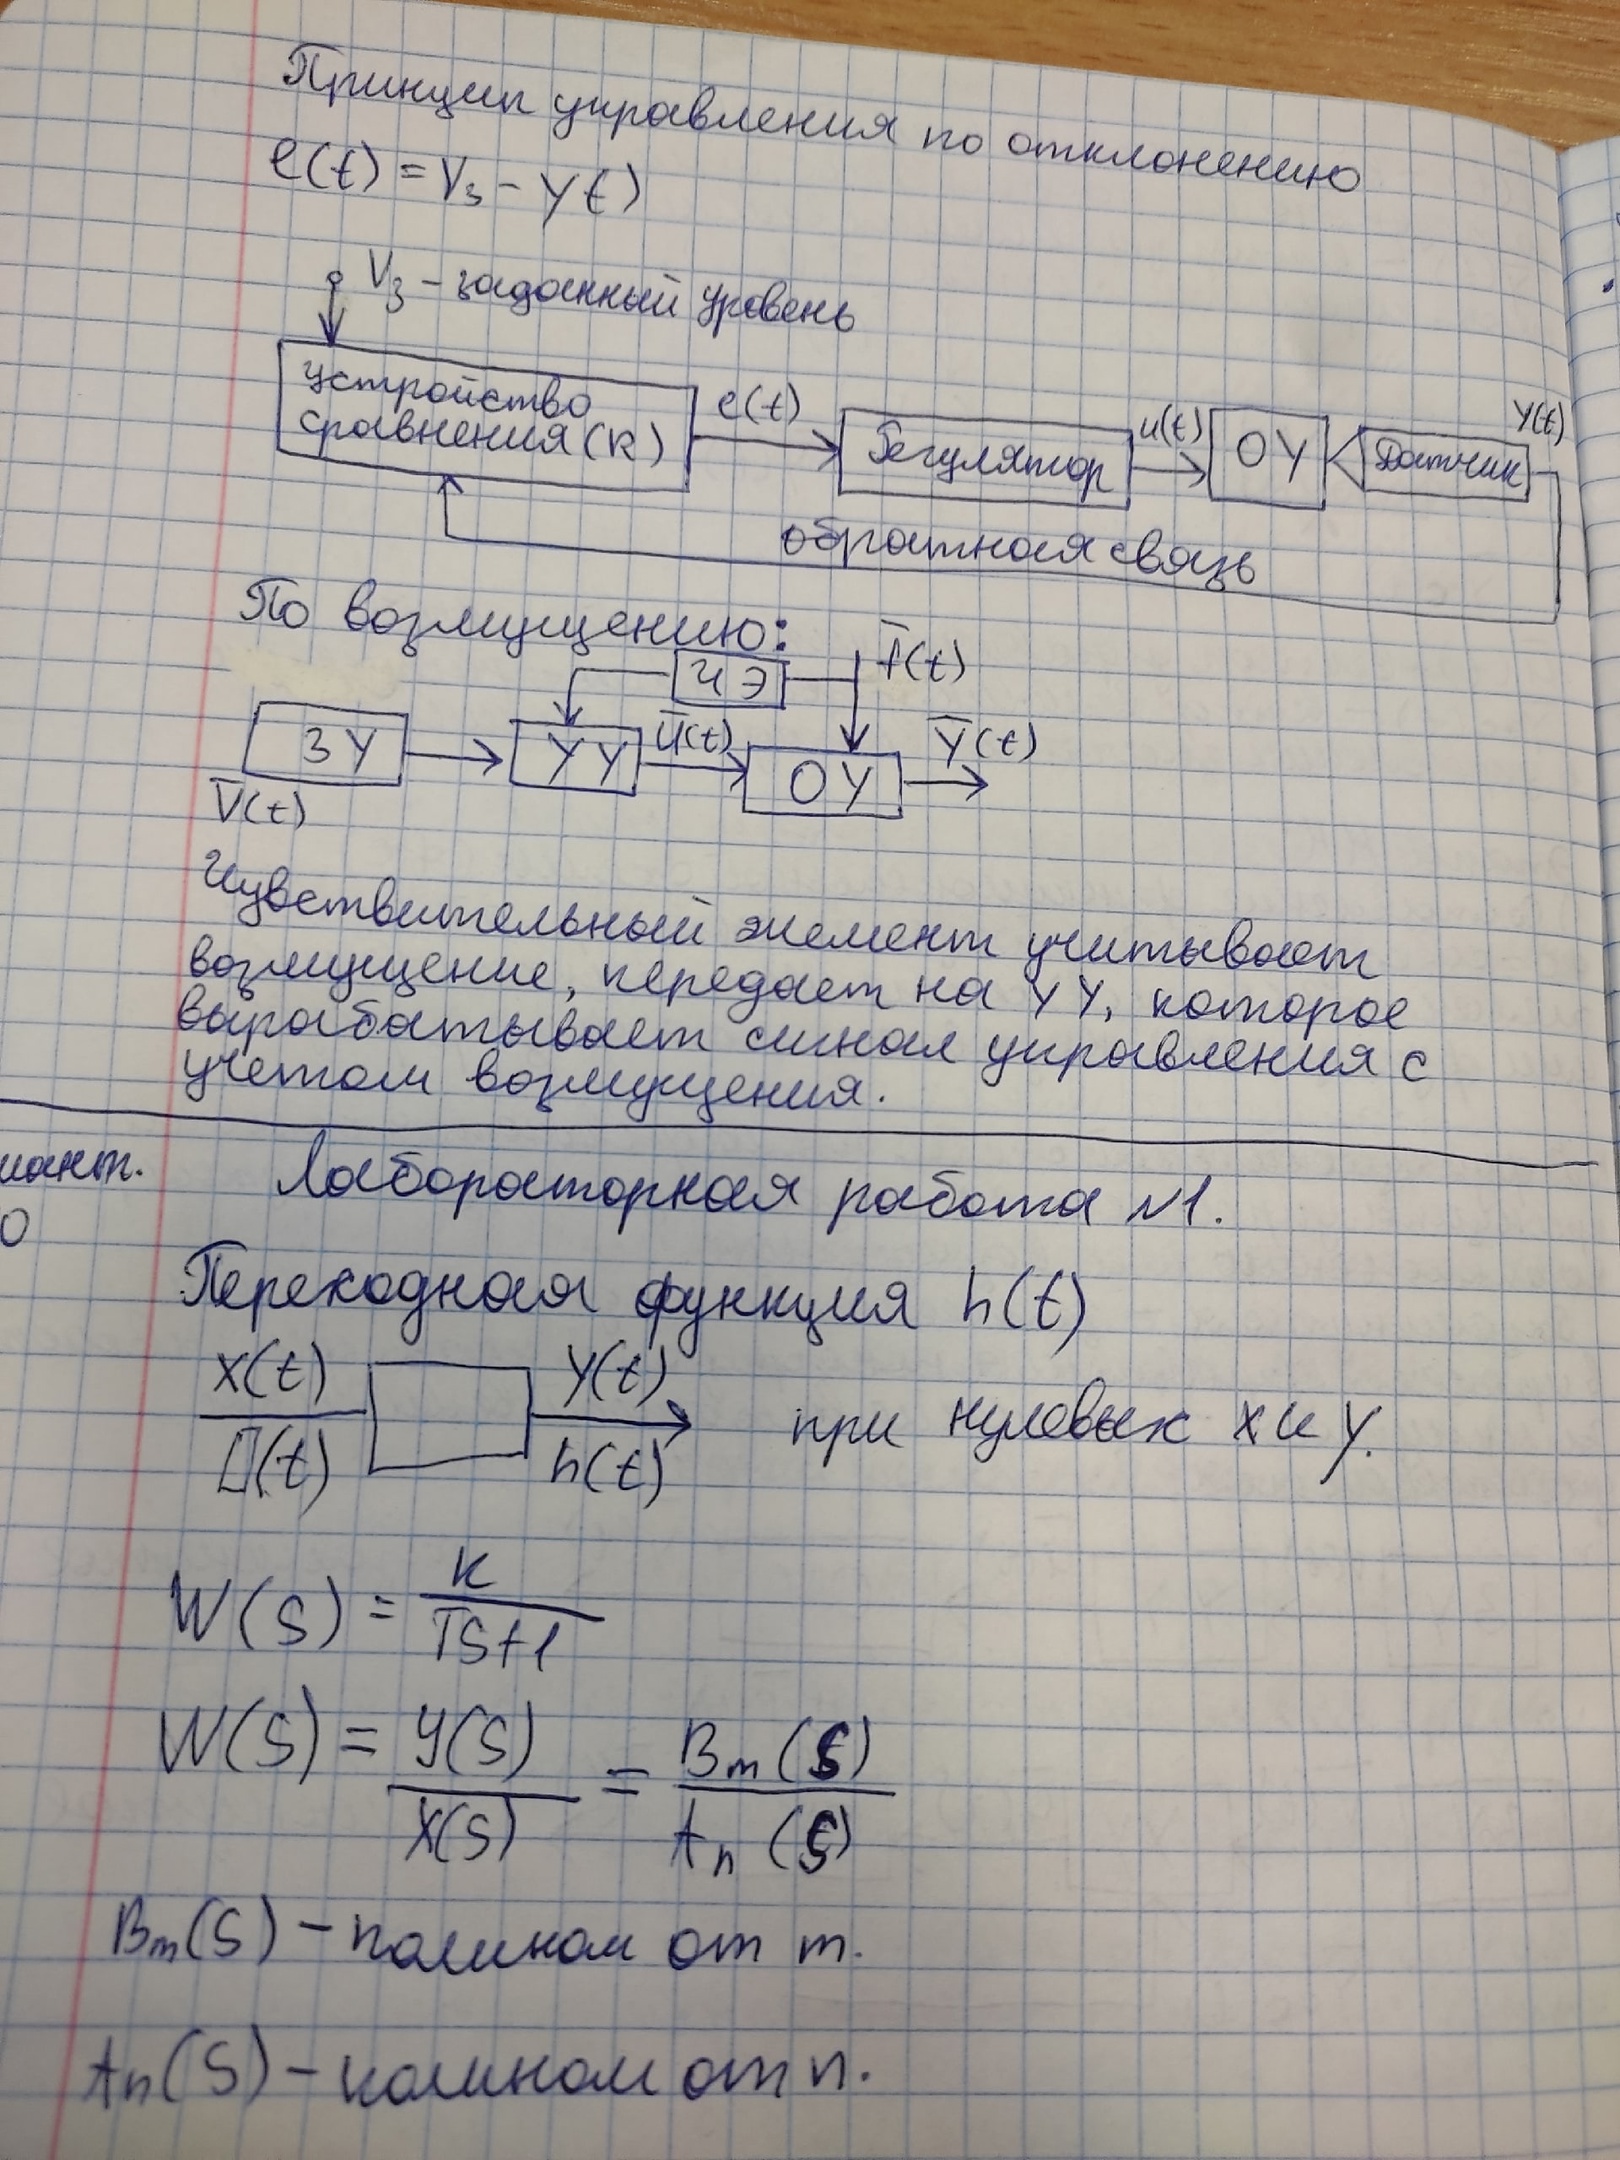 Принцип управления по отклонению
e(t) = V₃ - y t)
V₃ - заданный уровень
устройство
сравнения (R)
e(t)
Регулятор
u(t)
ОУ
Датчик
y(t)
обратная связь
По возмущению:
ЧЭ
f̅(t)
ЗУ
УУ
u̅(t)
ОУ
y̅(t)
V̅(t)
Чувствительный элемент учитывает
возмущение, передает на УУ, которое
вырабатывает сигнал управления с
учетом возмущения.
Лабораторная работа №1.
Переходная функция h(t)
x(t)
y(t)
при нулевых x и y.
(t)
h(t)
W(S) = K / TS+1
W(S) = y(S) / x(S) = Bm(S) / An(S)
Bm(S) - полином от m.
An(S) - полином от n.